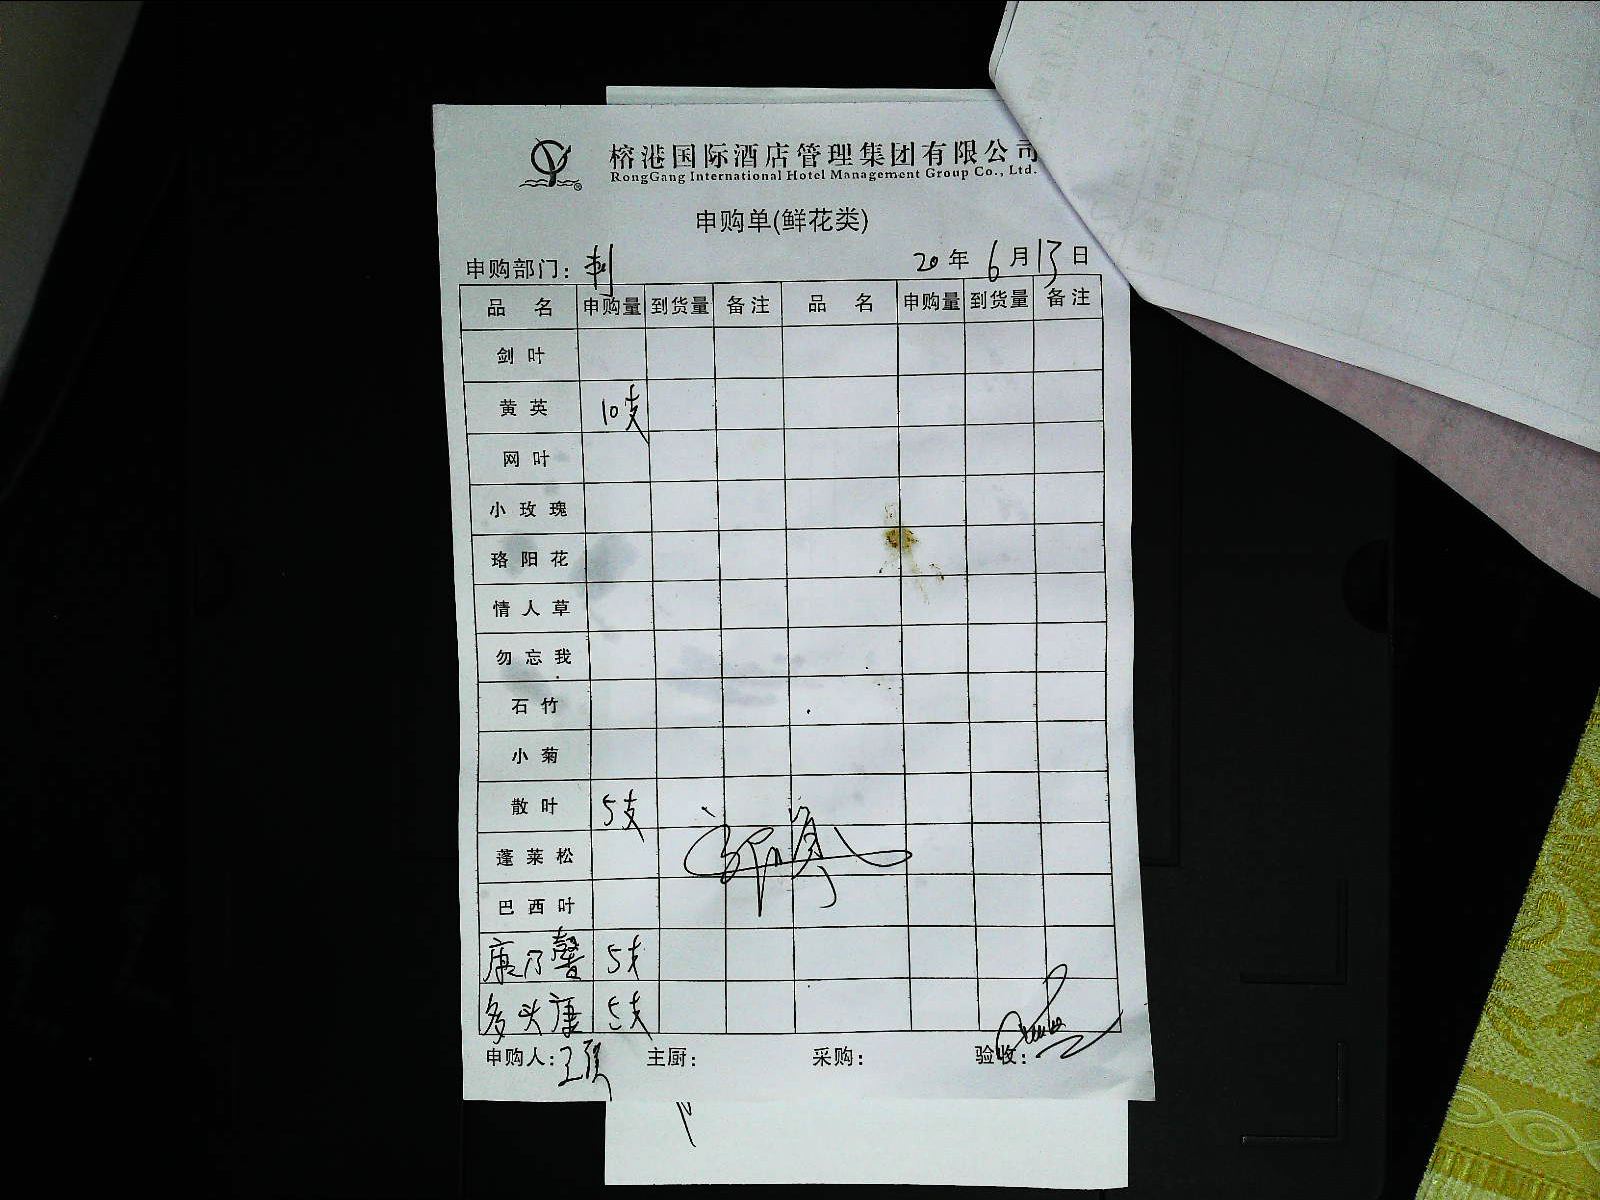 榕港国际酒店管理集团有限公司
RongGang International Hotel Management Group Co., Ltd.
申购单(鲜花类)
申购部门: 刺 20年6月13日
品名 申购量 到货量 备注 品名 申购量 到货量 备注
剑叶
黄英 10支
网叶
小玫瑰
珞阳花
情人草
勿忘我
石竹
小菊
散叶 5支
蓬莱松
巴西叶
康乃馨 5支
多头康 5支
申购人: 主厨: 采购: 验收: